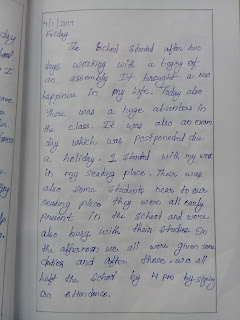 4/1/2019
Friday
The School started after two
days working with a begning of
an assembly. It brought a new
happiness in my life. Today also
there was a huge absentees in
the class. It was also an exam
day which was postponded due
a holiday. I started with my work
in my seating place. There was
also some students near to our
seating place they were all early
present in the school and were
also busy with their studies. In
the afternoon we all were given some
duties and after those we all
left the school by 4 pm by signing
an Attendance.